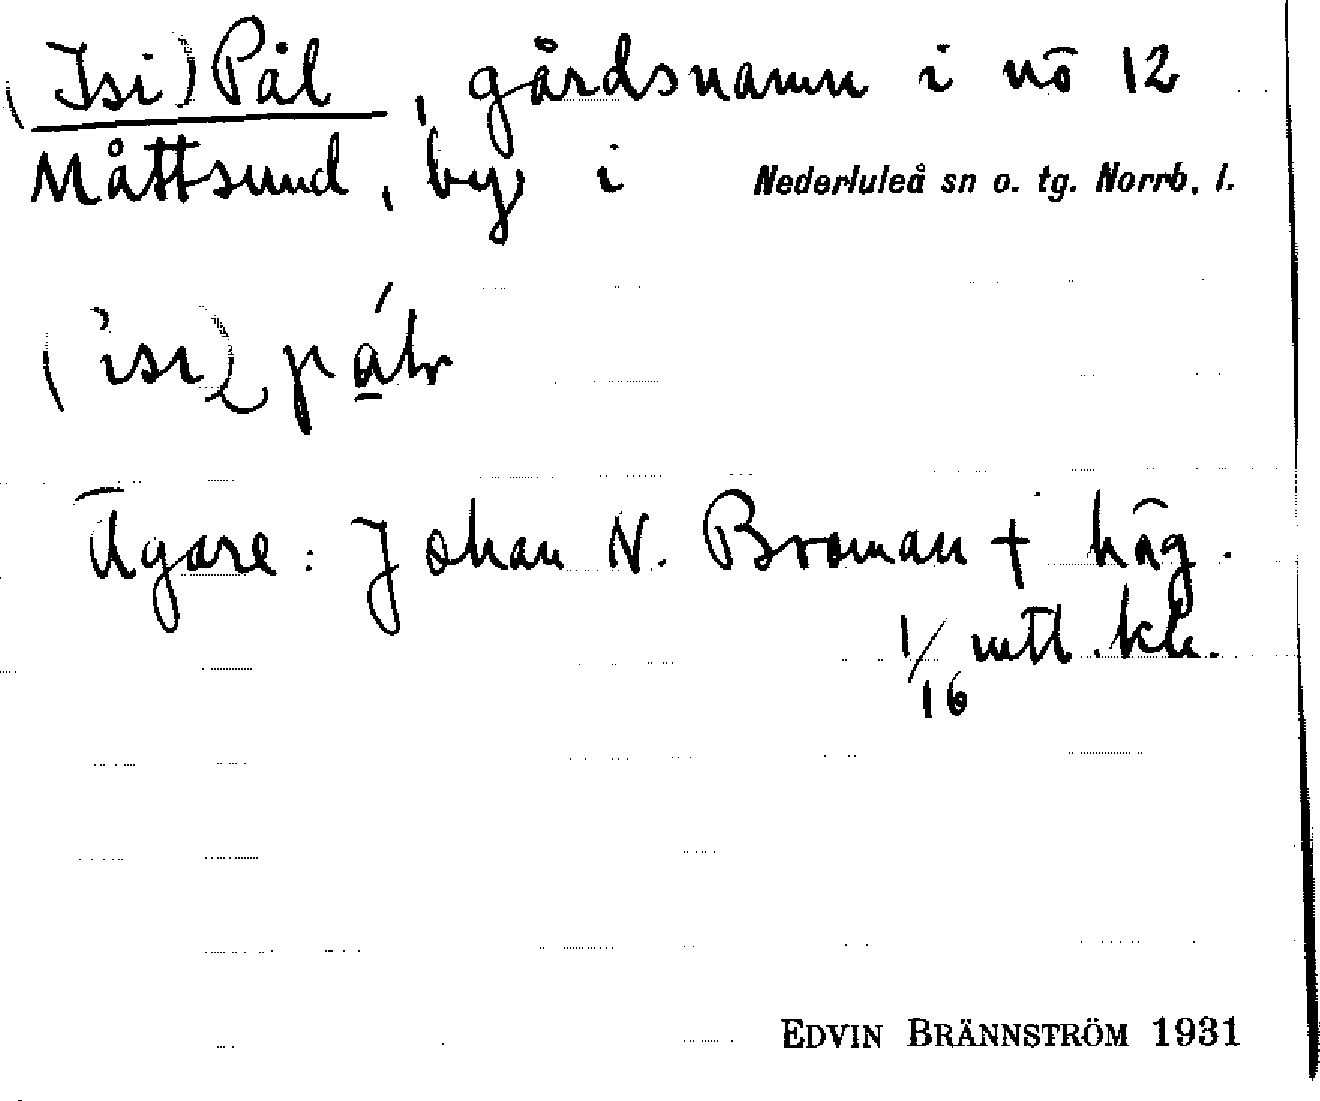 (Isi) Pål, gårdsnamn i nö 12
Måttsund, by i Nederluleå sn o. tg. Norrb. l.
Ägare: Johan N. Broman + häg.
1/16 mtl. kr.
EDVIN BRÄNNSTRÖM 1931